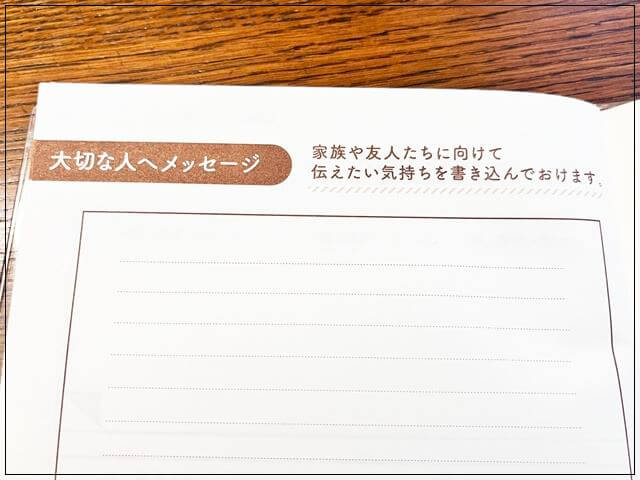 大切な人へメッセージ
家族や友人たちに向けて
伝えたい気持ちを書き込んでおけます。